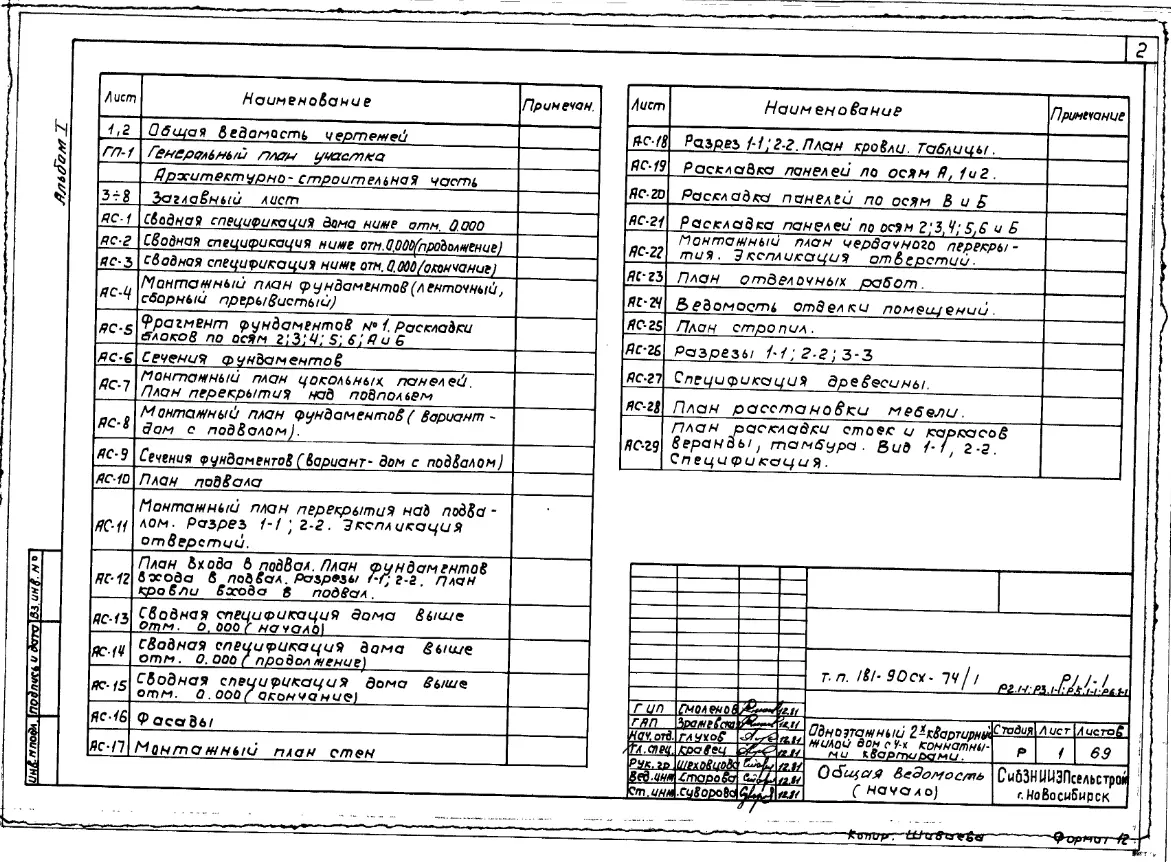 2
Альбом I
Лист Наименование Примечан.
1,2 Общая ведомость чертежей
ГП-1 Генеральный план участка
Архитектурно-строительная часть
3÷8 Заглавный лист
АС-1 Сводная спецификация дома ниже отм. 0.000
АС-2 Сводная спецификация ниже отм.0.000(продолжение)
АС-3 Сводная спецификация ниже отм.0.000(окончание)
АС-4 Монтажный план фундаментов(ленточный,
сборный прерывистый)
АС-5 Фрагмент фундаментов №1. Раскладки
блоков по осям 2;3;4; 5; 6; А и Б
АС-6 Сечения фундаментов
АС-7 Монтажный план цокольных панелей.
План перекрытия над подпольем
АС-8 Монтажный план фундаментов( вариант -
дом с подвалом).
АС-9 Сечения фундаментов(вариант- дом с подвалом)
АС-10 План подвала
АС-11 Монтажный план перекрытия над подва-
лом. Разрез 1-1 ; 2-2. Экспликация
отверстий.
АС-12 План входа в подвал. План фундаментов
входа в подвал. Разрезы 1-1; 2-2. План
кровли входа в подвал.
АС-13 Сводная спецификация дома выше
отм. 0.000( начало)
АС-14 Сводная спецификация дома выше
отм. 0.000( продолжение)
АС-15 Сводная спецификация дома выше
отм. 0.000( окончание)
АС-16 Фасады
АС-17 Монтажный план стен
Лист Наименование Примечание
АС-18 Разрез 1-1; 2-2. План кровли. Таблицы.
АС-19 Раскладка панелей по осям А, 1и2.
АС-20 Раскладка панелей по осям В и Б
АС-21 Раскладка панелей по осям 2;3,4; 5,6 и Б
АС-22 Монтажный план чердачного перекры-
тия. Экспликация отверстий.
АС-23 План отделочных работ.
АС-24 Ведомость отделки помещений.
АС-25 План стропил.
АС-26 Разрезы 1-1; 2-2; 3-3
АС-27 Спецификация древесины.
АС-28 План расстановки мебели.
АС-29 План раскладки стоек и каркасов
веранды, тамбура. Вид 1-1, 2-2.
Спецификация.
т.п. 181-90сх-74/1 Р1.1-1
Р2.1-1; Р3.1-1; Р5.1-1; Р6.1-1
ГИП Смоленов 12.81
ГАП 12.81
Нач.отд. Глухов 12.81
Гл.спец. Кравец 12.81
Рук.гр Шеховцова 12.81
Вед.инж Старова 12.81
Ст.инж. Суворова 12.81
Одноэтажный 2х квартирный
жилой дом с 4-х комнатны-
ми квартирами.
Стадия Лист Листов
Р 1 69
Общая ведомость
( начало)
СибЗНИИЭПсельстрой
г. Новосибирск
Инв.№подл. Подпись и дата Вз.инв.№
Копир. Шиваева Формат 12